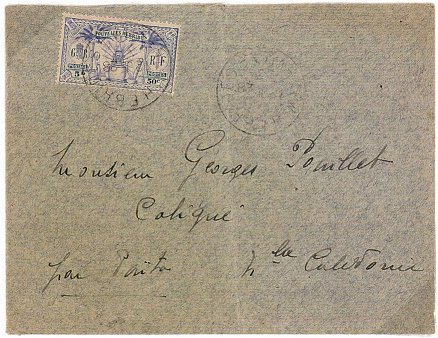 NOUVELLES HEBRIDES
G R R F
5d 50c
Monsieur Georges Pouillet
Coligné
par Poita Nlle Calédonie